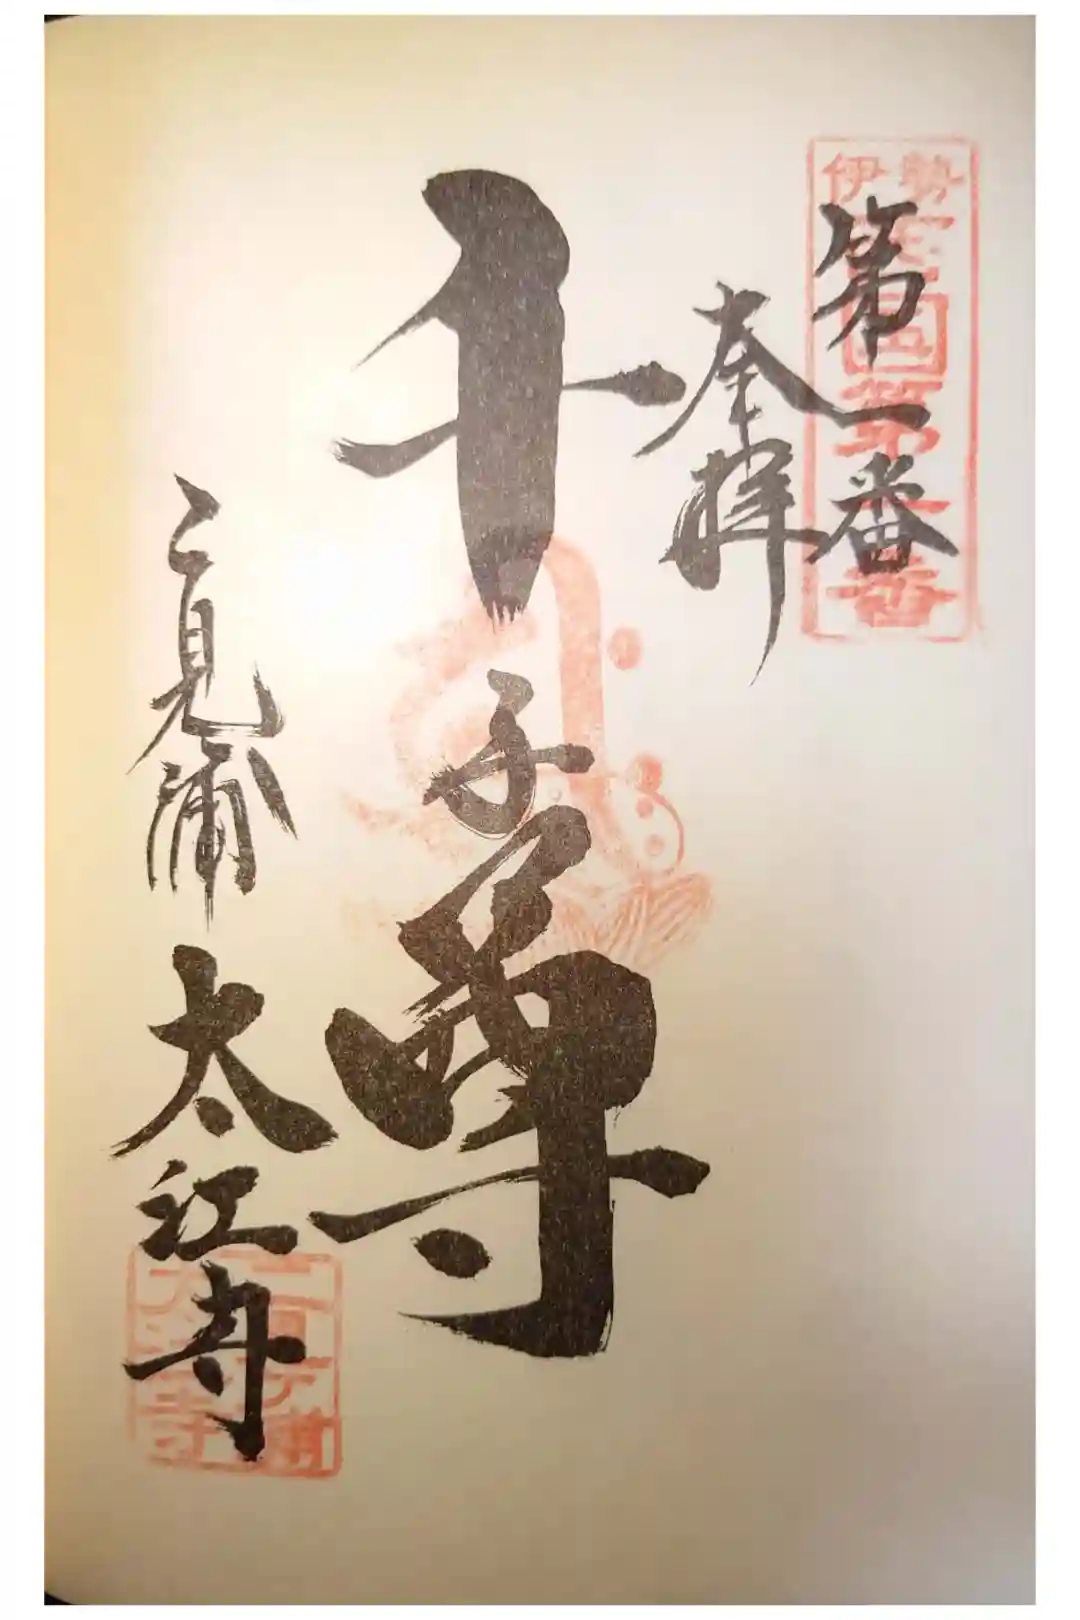 第一番
伊勢西国第一番
奉拝
千手尊
二見浦 太江寺
二見ヶ浦
太江寺